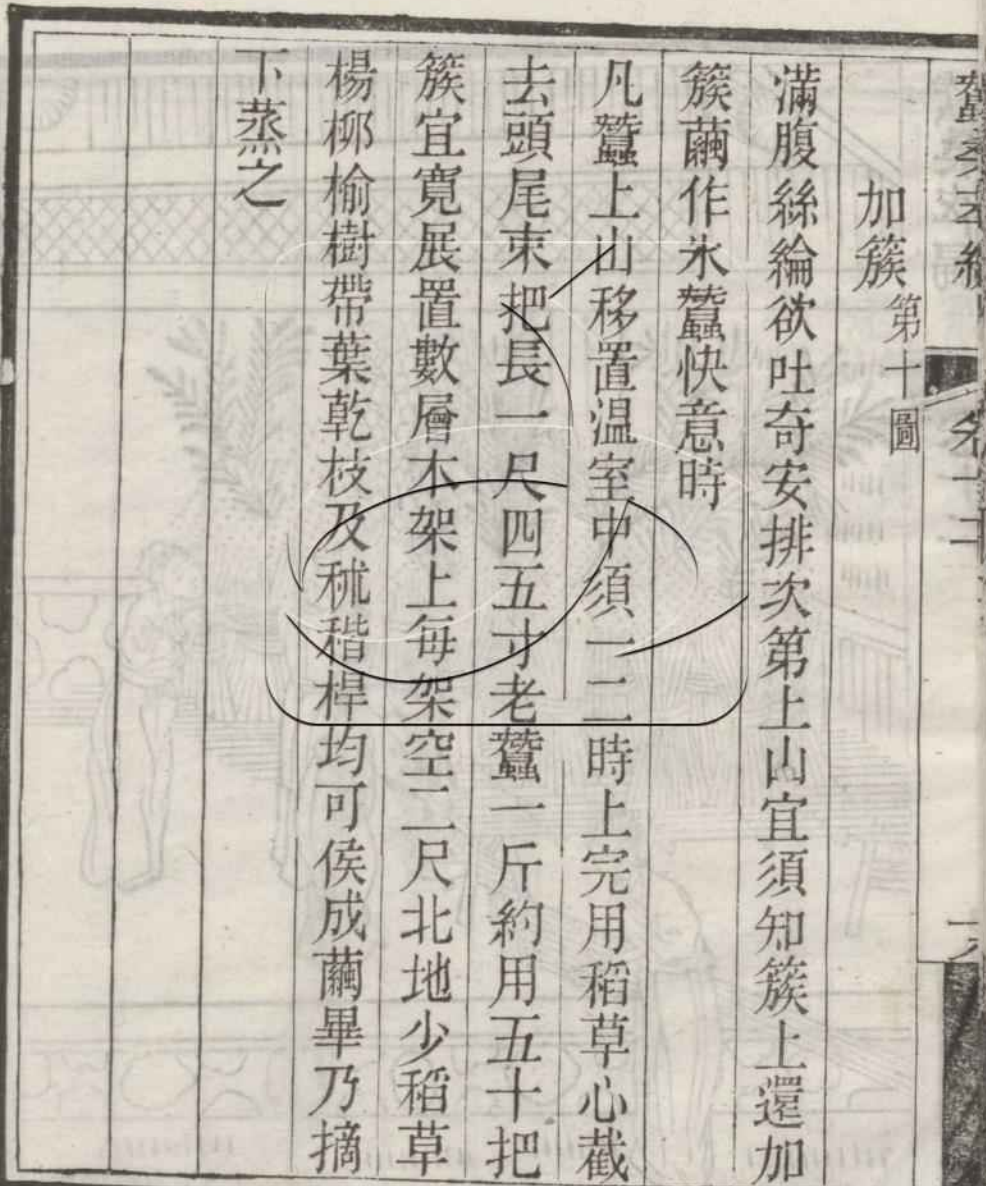 加簇第十圖
滿腹絲綸欲吐奇安排次第上山宜須知簇上還加
簇繭作氷蠶快意時
凡蠶上山移置溫室中須一二時上完用稻草心截
去頭尾束把長一尺四五寸老蠶一斤約用五十把
簇宜寬展置數層木架上每架空二尺北地少稻草
楊柳榆樹帶葉乾枝及秫稭桿均可侯成繭畢乃摘
下蒸之